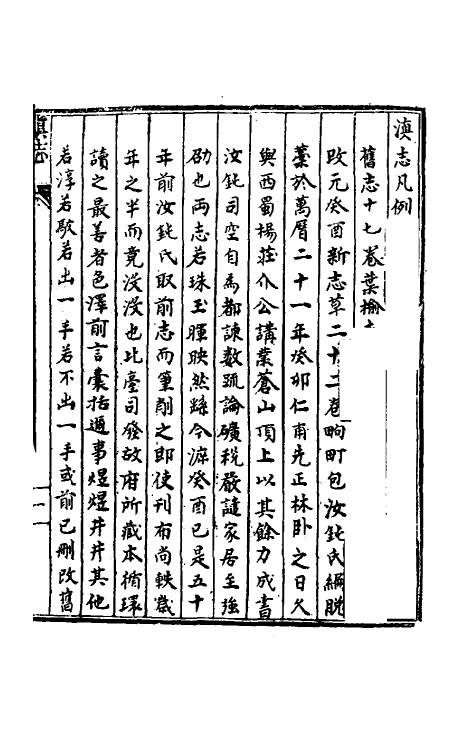 滇志凡例
舊志十七卷葉榆
改元癸酉新志草二十二卷畇町包汝鈍氏編脫
藁於萬曆二十一年癸卯仁甫先正林卧之日久
與西蜀楊莊介公講業蒼山頂上以其餘力成書
汝鈍司空自為都諫數疏論礦稅發讜家居至強
劭也两志若珠玉暉映然繇今遡癸酉已是五十
年前汝鈍氏取前志而筆削之即使刊布尚軼歲
年之半而竟没没也比臺司發故府所藏本循環
讀之最善者色澤前言囊括遐事煜煜井井其他
若淳若駁若出一手若不出一手或前已刪改舊
滇志